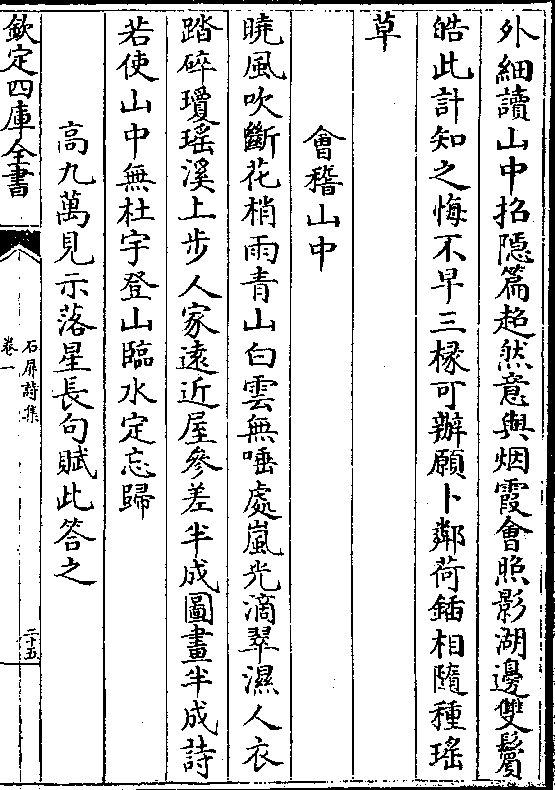 外細讀山中招隱篇超然意與烟霞會照影湖邊雙鬢
皓此計知之悔不早三椽可辦願卜鄰荷鍤相隨種瑤
草
會稽山中
曉風吹斷花梢雨青山白雲無唾處嵐光滴翠濕人衣
踏碎瓊瑤溪上步人家遠近屋參差半成圖畫半成詩
若使山中無杜宇登山臨水定忘歸
高九萬見示落星長句賦此答之
欽定四庫全書
石屏詩集
卷一
二十五